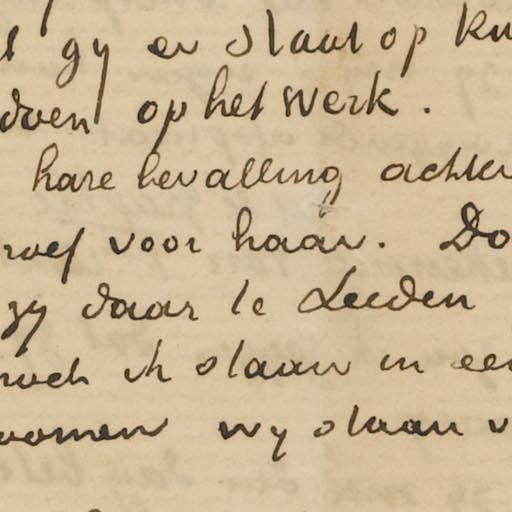 gy er staat op ku
doen op het werk.
hare bevalling achter
roef voor haar. Do
zy daar te Leeden
noch ik staan in een
komen wy staan v